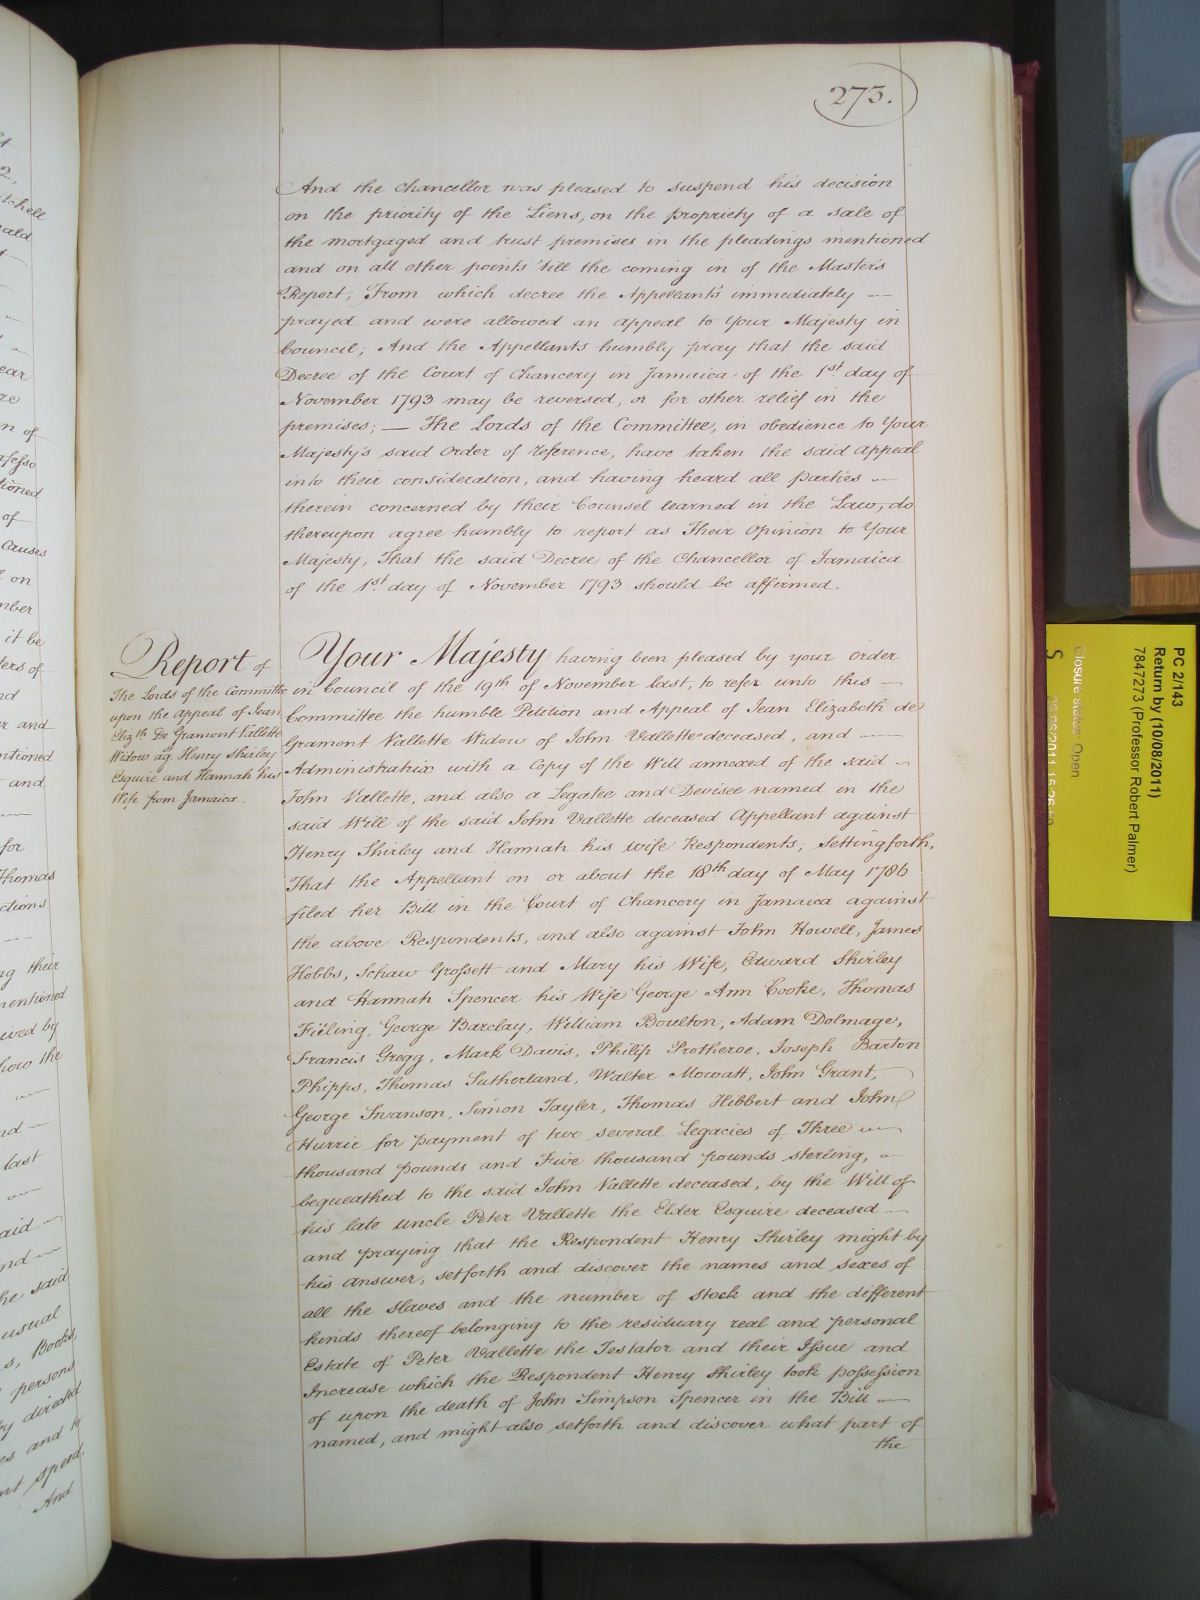 273.
And the Chancellor was pleased to suspend his decision
on the priority of the Liens, on the propriety of a sale of
the mortgaged and trust premises in the pleadings mentioned
and on all other points 'till the coming in of the Master's
Report; From which decree the Appellants immediately
prayed and were allowed an appeal to Your Majesty in
Council; And the Appellants humbly pray that the said
Decree of the Court of Chancery in Jamaica of the 1st day of
November 1793 may be reversed, or for other relief in the
premises; — The Lords of the Committee, in obedience to Your
Majesty's said Order of reference, have taken the said Appeal
into their consideration, and having heard all parties
therein concerned by their Counsel learned in the Law, do
thereupon agree humbly to report as Their Opinion to Your
Majesty, That the said Decree of the Chancellor of Jamaica
of the 1st day of November 1793 should be affirmed.
Report of
the Lords of the Committee
upon the appeal of Jean
Elizth De Gramont Vallette
Widow agt Henry Shirley
Esquire and Hannah his
Wife from Jamaica.
Your Majesty having been pleased by your Order
in Council of the 19th of November last, to refer unto this
Committee the humble Petition and Appeal of Jean Elizabeth de
Gramont Vallette Widow of John Vallette deceased, and
Administratrix with a Copy of the Will annexed of the said
John Vallette, and also a Legatee and Devisee named in the
said Will of the said John Vallette deceased Appellant against
Henry Shirley and Hannah his wife Respondents; Setting forth,
That the Appellant on or about the 18th day of May 1786
filed her Bill in the Court of Chancery in Jamaica against
the above Respondents, and also against John Howell, James
Hobbs, Schaw Grossett and Mary his Wife, Edward Shirley
and Hannah Spencer his Wife George Ann Cooke, Thomas
George Barclay, William Boulton, Adam Dolmage,
Francis Gregg, Mark Davis, Philip Protheroe, Joseph Barton
Phipps, Thomas Sutherland, Walter Mowatt, John Grant,
George Swanson, Simon Tayler, Thomas Hibbert and John
Hurrie for payment of two several Legacies of Three
thousand pounds and Five thousand pounds sterling,
bequeathed to the said John Vallette deceased, by the Will of
his late uncle Peter Vallette the Elder Esquire deceased
and praying that the Respondent Henry Shirley might by
his answer, setforth and discover the names and sexes of
all the slaves and the number of stock and the different
kinds thereof belonging to the residuary real and personal
Estate of Peter Vallette the Testator and their Issue and
Increase which the Respondent Henry Shirley took possession
of upon the death of John Simpson Spencer in the Bill
named, and might also setforth and discover what part of
the
PC 2/143
Return by (10/08/2011)
7847273 (Professor Robert Palmer)
Closure status: Open
S